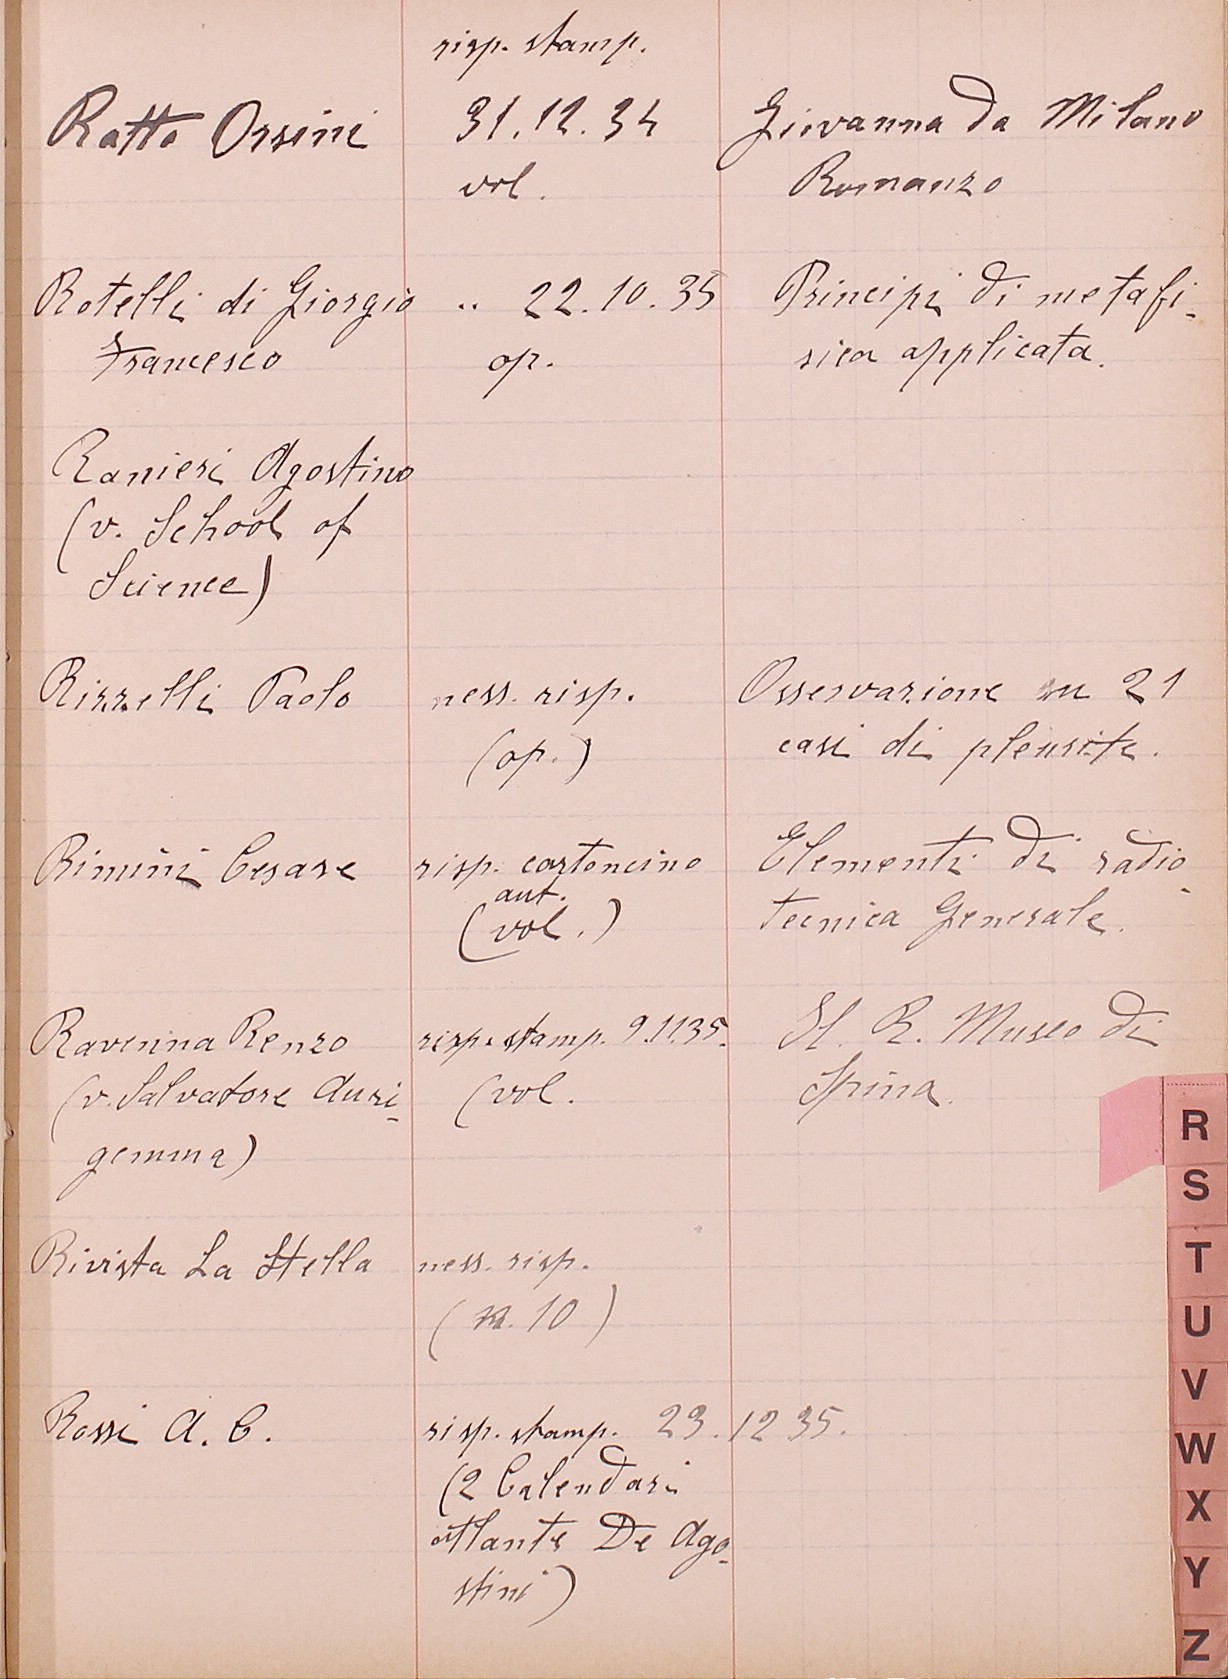 risp. stamp.
Ratto Orsini 31.12.34 Giovanna da Milano
vol. Romanzo
Rotelli di Giorgio .. 22.10.35 Principi di metafi-
Francesco op. sica applicata.
Ranieri Agostino
(v. School of
Science)
Rizzelli Paolo ness. risp. Osservazione su 21
(op.) casi di pleurite.
Rimini Cesare risp. cartoncino Elementi di radio-
aut.
(vol.) tecnica Generale.
Ravenna Renzo risp. stamp. 9.1.135. Il R. Museo di
(v. Salvatore Auri- (vol. Spina.
gemma)
Rivista La Stella ness. risp.
(n. 10)
Rossi A. C. risp. stamp. 23.12 35.
(2 Calendari
atlante De Ago-
stini)
R
S
T
U
V
W
X
Y
Z